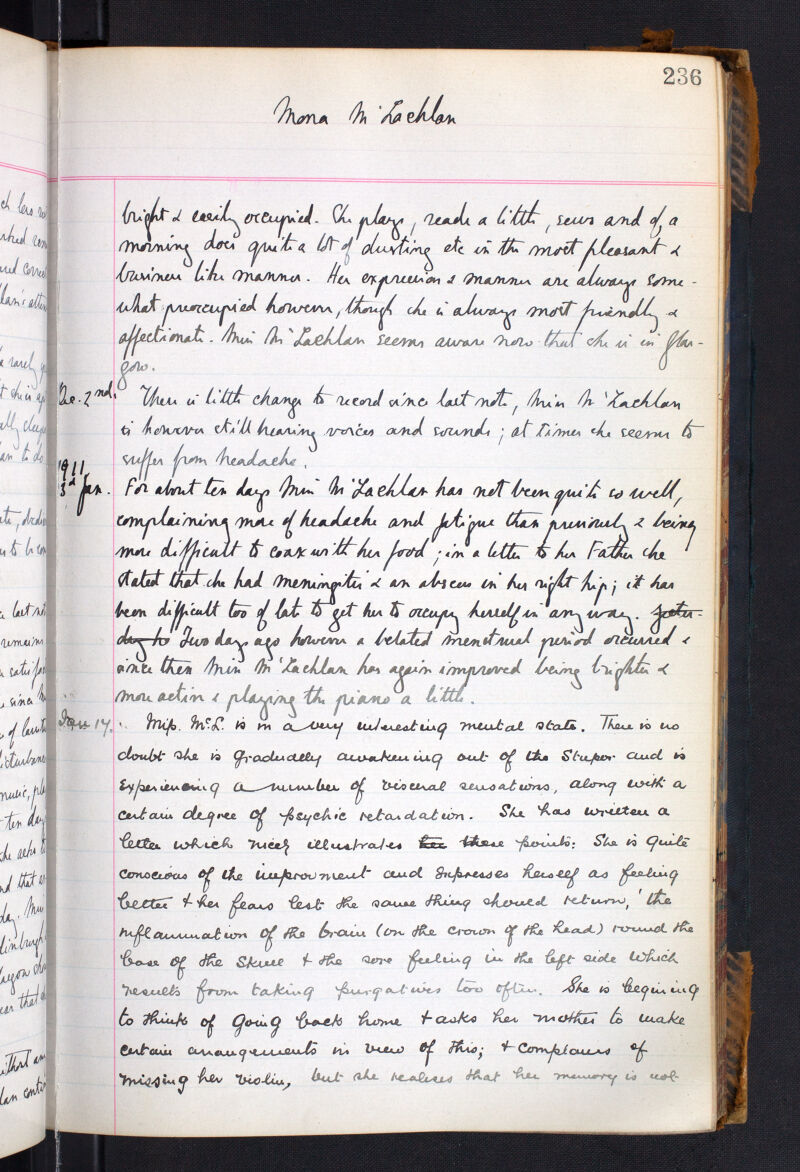 236
Mona McLachlan
bright & easily occupied. She plays, reads a little, sews and of a
morning does quite a lot of dusting etc in the most pleasant &
business like manner. Her expression & manner are always some-
what preoccupied however, though she is always most friendly &
affectionate. Miss McLachlan seems aware now that she is in Glas-
gow.
Dec. 2nd. There is little change to record since last note, Miss McLachlan
is however still hearing voices and sounds; at times she seems to
suffer from headache.
1911
3d Jan. For about ten days Miss McLachlan has not been quite so well,
complaining more of headache and fatigue than previously & being
more difficult to coax with her food; in a letter to her Father she
stated that she had meningitis & an abscess in her right hip; it has
been difficult too of late to get her to occupy herself in any way. Yester-
day to Two days ago however a belated menstrual period occurred &
since then Miss McLachlan has again improved being brighter &
more active & playing the piano a little.
Jan 14. Miss. McL. is in a very interesting mental state. There is no
doubt she is gradually awakening out of the Stupor and is
experiencing a number of visceral sensations, along with a
certain degree of psychic retardation. She has written a
letter which nicely illustrates her these points: She is quite
conscious of the improvment and expresses herself as feeling
better & her fears lest the same thing should return, 'the
inflammation of the brain (on the crown of the head) round the
base of the skull & the sore feeling in the left side which
results from taking purgatives too often. She is begining
to think of going back home & asks her mother to make
certain arrangements in view of this; & complains of
missing her violin, but she realises that her memory is not